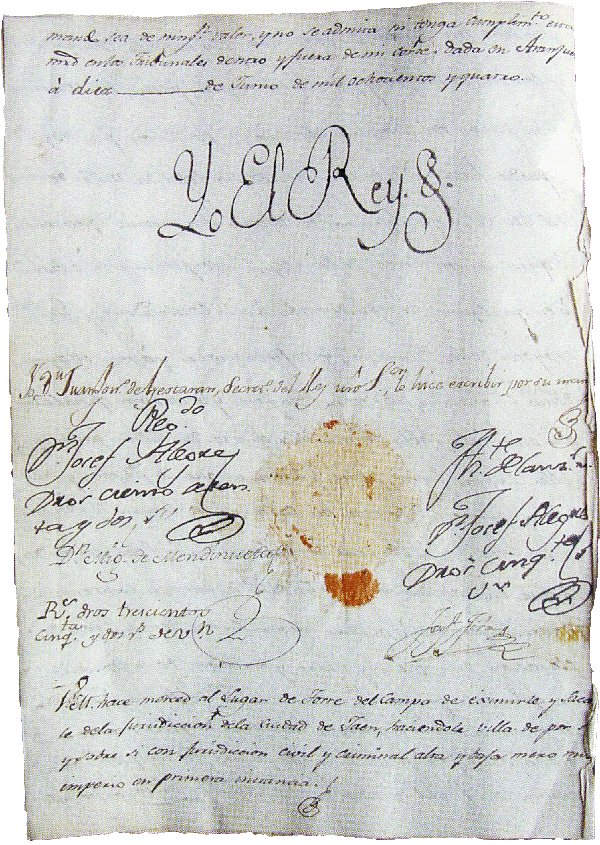 manè sea de ningn. valor, y no se admita ni tenga cumplimto. esta
md en los Tribunales dentro y fuera de mi Corte. dada en Aranjuez
á diez de Junio de mil ochocientos y quatro.
Yo El Rey.
Juan de Secreto. del Rey nro Sor. lo hice escribir por su man
Regdo
Dn. Josef Alegre
Dros ciento
ta y dos
Dn. Mig. de Mendinueta
Rs. dros trescientos
cinqta. y dos rs. de vn
Thte. de Canzr.
Dn. Josef Alegre
Dros cinqta.
vn
V.M. hace merced al Lugar de Torre del Campo de eximirle y Saca
le de la Jurisdiccion de la Ciudad de Jaen, haciendola Villa de por si
y sobre si con Jurisdiccion civil y criminal alta y baja mero mixto
imperio en primera instancia.